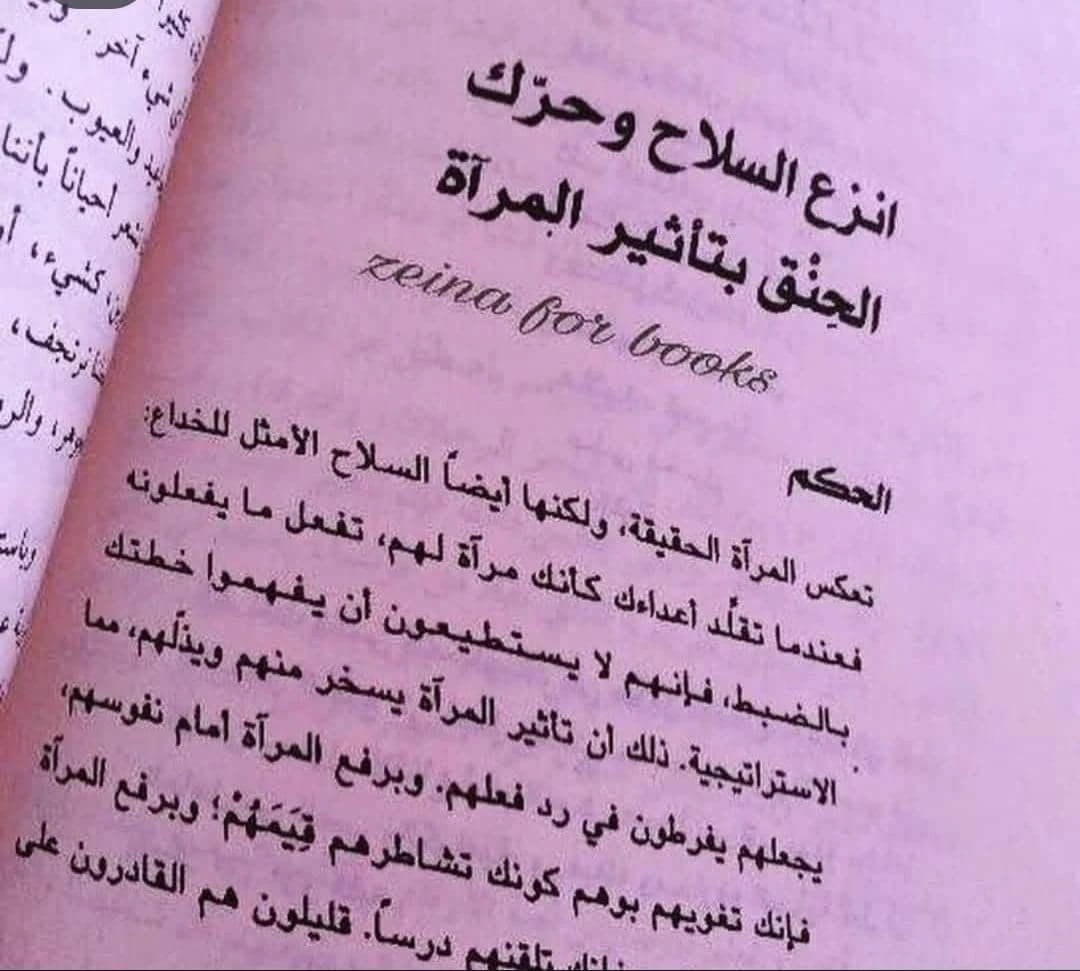 انزع السلاح وحرّك
الحِنْق بتأثير المرآة
zeina for books
الحكم
تعكس المرآة الحقيقة، ولكنها أيضاً السلاح الأمثل للخداع:
فعندما تقلّد أعداءك كأنك مرآة لهم، تفعل ما يفعلونه
بالضبط، فإنهم لا يستطيعون أن يفهموا خطتك
الاستراتيجية. ذلك أن تأثير المرآة يسخر منهم ويذلّهم، مما
يجعلهم يفرطون في رد فعلهم. وبرفع المرآة أمام نفوسهم،
فإنك تغويهم بوهم كونك تشاطرهم قِيَمَهُمْ؛ وبرفع المرآة
تلقنهم درساً. قليلون هم القادرون على
آخر.
والعيوب.
احياناً بأننا
كشيء،